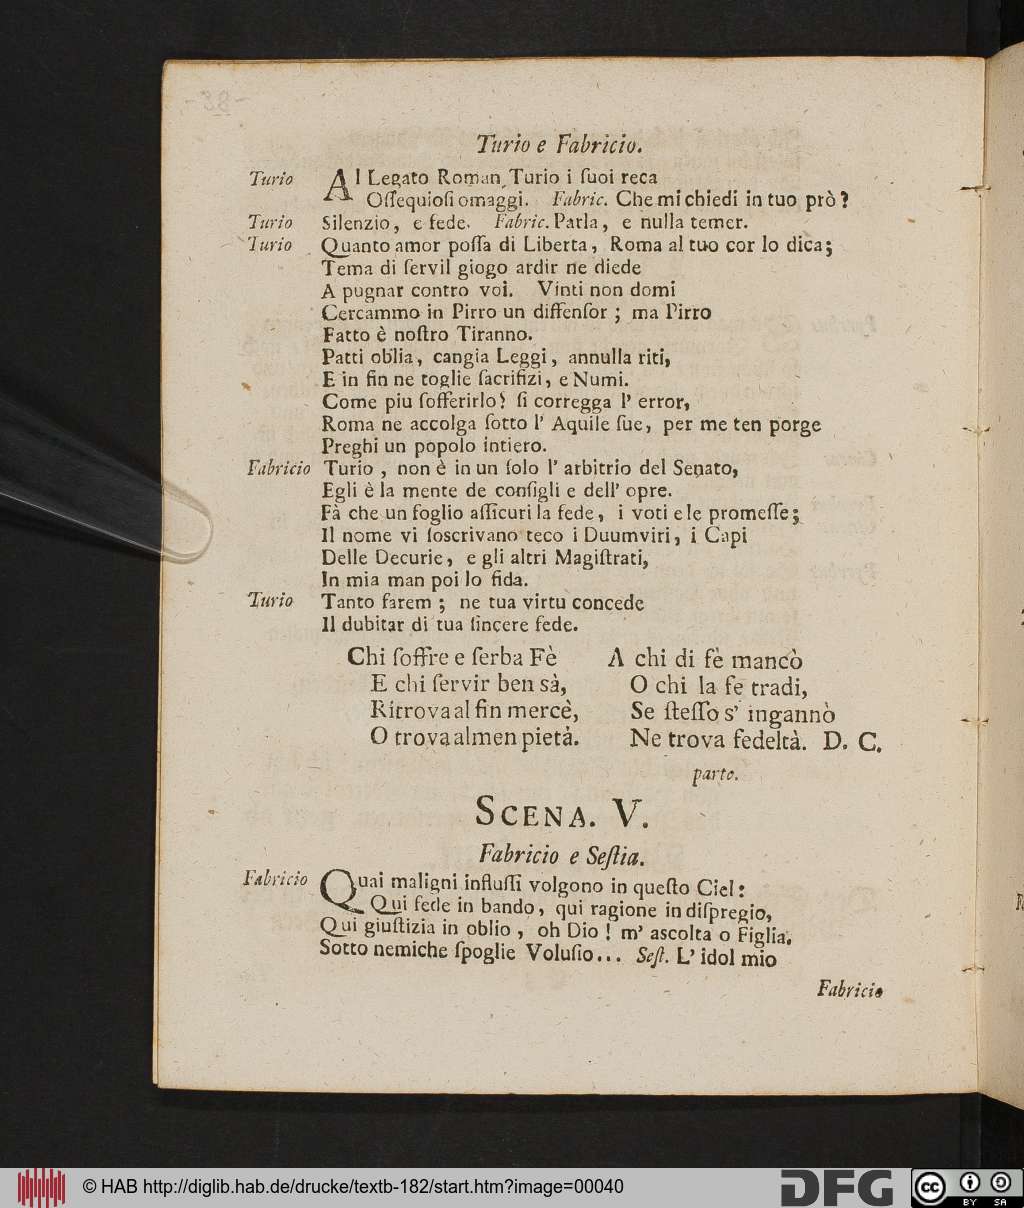 Turio e Fabricio.
Turio Al Legato Roman Turio i ſuoi reca
Oſſequioſi omaggi. Fabric. Che mi chiedi in tuo prò?
Turio Silenzio, e fede. Fabric. Parla, e nulla temer.
Turio Quanto amor poſſa di Liberta, Roma al tuo cor lo dica;
Tema di ſervil giogo ardir ne diede
A pugnar contro voi. Vinti non domi
Cercammo in Pirro un diffenſor; ma Pirro
Fatto è noſtro Tiranno.
Patti oblia, cangia Leggi, annulla riti,
E in fin ne toglie ſacrifizi, e Numi.
Come piu ſofferirlo? ſi corregga l' error,
Roma ne accolga ſotto l' Aquile ſue, per me ten porge
Preghi un popolo intiero.
Fabricio Turio, non è in un ſolo l' arbitrio del Senato,
Egli è la mente de conſigli e dell' opre.
Fà che un foglio aſſicuri la fede, i voti e le promeſſe;
Il nome vi ſoscrivano teco i Duumviri, i Capi
Delle Decurie, e gli altri Magiſtrati,
In mia man poi lo fida.
Turio Tanto farem; ne tua virtu concede
Il dubitar di tua ſincere fede.
Chi ſoffre e ſerba Fè
E chi ſervir ben sà,
Ritrova al fin mercè,
O trova almen pietà.
A chi di fè mancò
O chi la fe tradi,
Se ſteſſo s' ingannò
Ne trova fedeltà. D. C.
parte.
SCENA. V.
Fabricio e Seſtia.
Fabricio Quai maligni influſſi volgono in queſto Ciel:
Qui fede in bando, qui ragione in diſpregio,
Qui giuſtizia in oblio, oh Dio! m' ascolta o Figlia.
Sotto nemiche ſpoglie Voluſio... Seſt. L' idol mio
Fabricio
© HAB http://diglib.hab.de/drucke/textb-182/start.htm?image=00040
DFG
cc BY SA